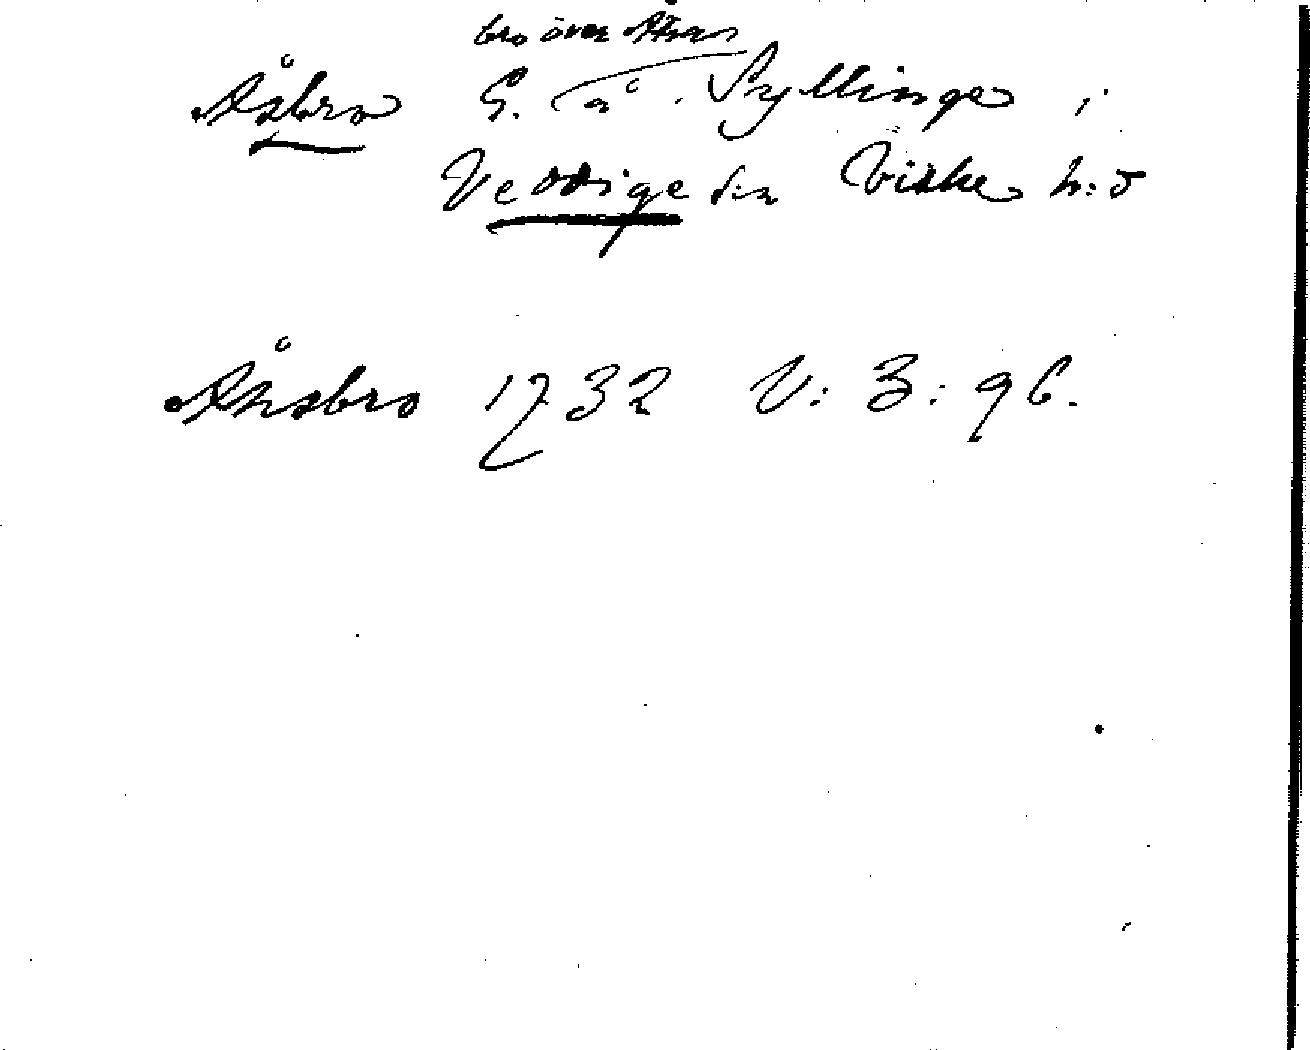 bro över Åsan
Åsbro G. å Syllinge i
Veddige sn Viske h:d
Åhsbro 1732 V: 3: 96.